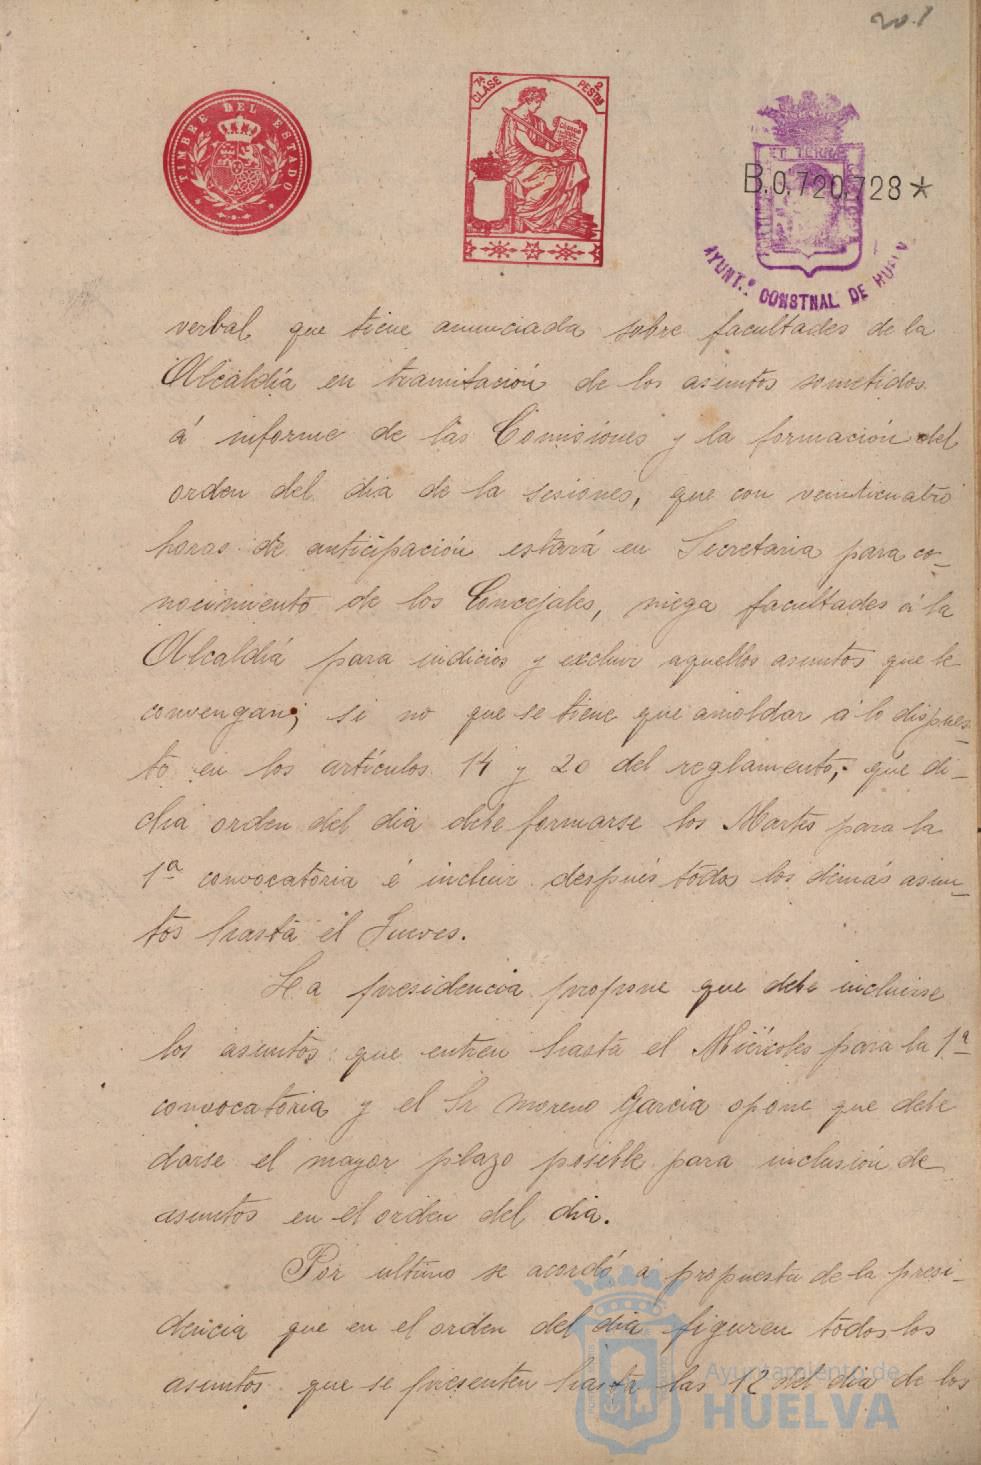 201
TIMBRE DEL ESTADO
7ª CLASE 2 PESTAS
B.0.720.728*
AYUNT.º CONSTNAL DE HUELV
verbal que tiene anunciada sobre facultades de la
Alcaldía en tramitación de los asuntos sometidos
á informe de las Comisiones y la formación del
orden del dia de la sesiones, que con veinticuatro
horas de anticipación estará en Secretaria para co-
nocimiento de los Concejales, niega facultades á la
Alcaldía para indicios y excluir aquellos asuntos que le
convengan; si no que se tiene que amoldar á lo dispues-
to en los artículos 14 y 20 del reglamento; que di-
cha orden del dia debe formarse los Martes para la
1ª convocatoria é incluir después todos los demás asun-
tos hasta el Jueves.
La presidencia propone que debe incluirse
los asuntos que entren hasta el Miércoles para la 1ª
convocatoria y el Sr Moreno Garcia opone que debe
darse el mayor plazo posible para inclusión de
asuntos en el orden del dia.
Por ultimo se acordó á propuesta de la presi-
dencia que en el orden del dia figuren todos los
asuntos que se presenten hasta las 12 del dia de los
Ayuntamiento de
HUELVA